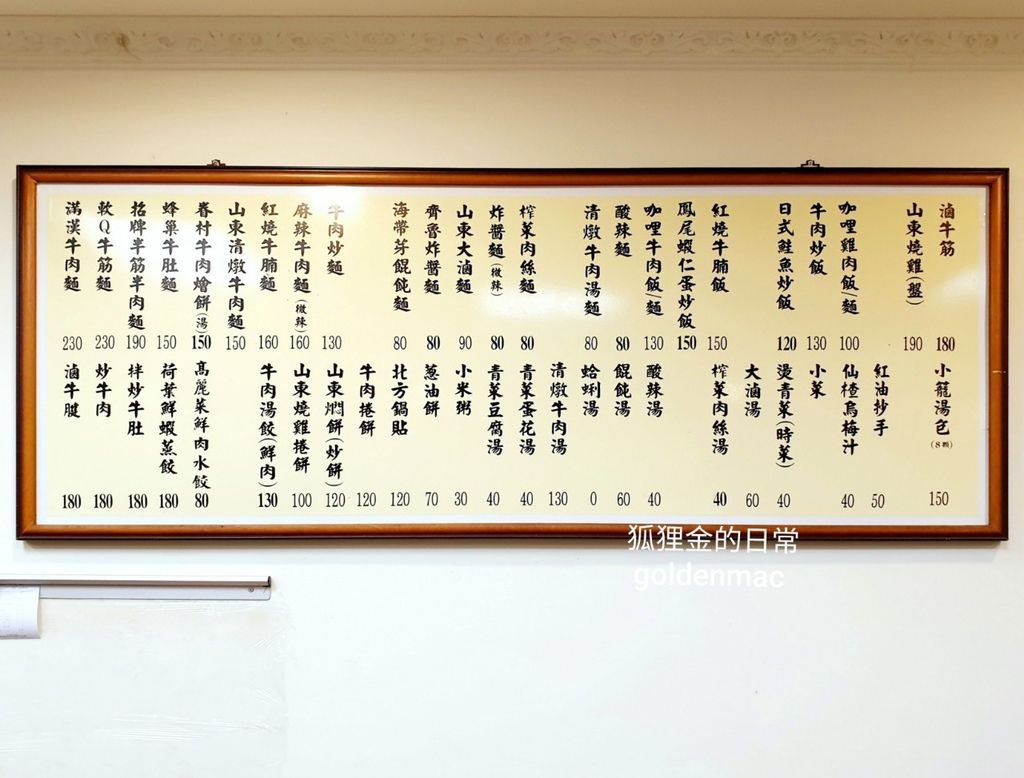 滿漢牛肉麵 230
軟Q牛筋麵 230
招牌半筋半肉麵 190
蜂巢牛肚麵 150
眷村牛肉燴餅(湯) 150
山東清燉牛肉麵 150
紅燒牛腩麵 160
麻辣牛肉麵(微辣) 160
牛肉炒麵 130
海帶芽餛飩麵 80
齊魯炸醬麵 80
山東大滷麵 90
炸醬麵(微辣) 80
榨菜肉絲麵 80
清燉牛肉湯麵 80
酸辣麵 80
咖哩牛肉飯/麵 130
鳳尾蝦仁蛋炒飯 150
紅燒牛腩飯 150
日式鮭魚炒飯 120
牛肉炒飯 130
咖哩雞肉飯/麵 100
山東燒雞(盤) 190
滷牛筋 180
滷牛腱 180
炒牛肉 180
拌炒牛肚 180
荷葉鮮蝦蒸餃 180
高麗菜鮮肉水餃 80
牛肉湯餃(鮮肉) 130
山東燒雞捲餅 100
山東燜餅(炒餅) 120
牛肉捲餅 120
北方鍋貼 120
蔥油餅 70
小米粥 30
青菜豆腐湯 40
青菜蛋花湯 40
清燉牛肉湯 130
蛤蜊湯 0
餛飩湯 60
酸辣湯 40
榨菜肉絲湯 40
大滷湯 60
燙青菜(時菜) 40
小菜
仙楂烏梅汁 40
紅油抄手 50
小籠湯包(8顆) 150
狐狸金的日常
goldenmac